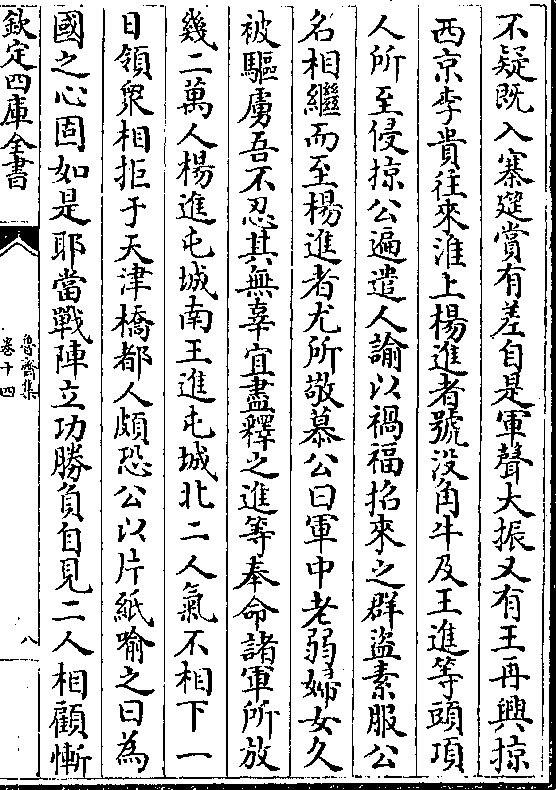 不疑既入寨建賞有差自是軍聲大振又有王再興掠
西京李貴往來淮上楊進者號没角牛及王進等頭項
人所至侵掠公遍遣人諭以禍福招來之群盜素服公
名相繼而至楊進者尤所敬慕公曰軍中老弱婦女久
被驅虜吾不忍其無辜宜盡釋之進等奉命諸軍所放
幾二萬人楊進屯城南王進屯城北二人氣不相下一
日領衆相拒于天津橋都人頗恐公以片紙喻之曰為
國之心固如是耶當戰陣立功勝負自見二人相顧慚
欽定四庫全書
魯齋集
卷十四
八